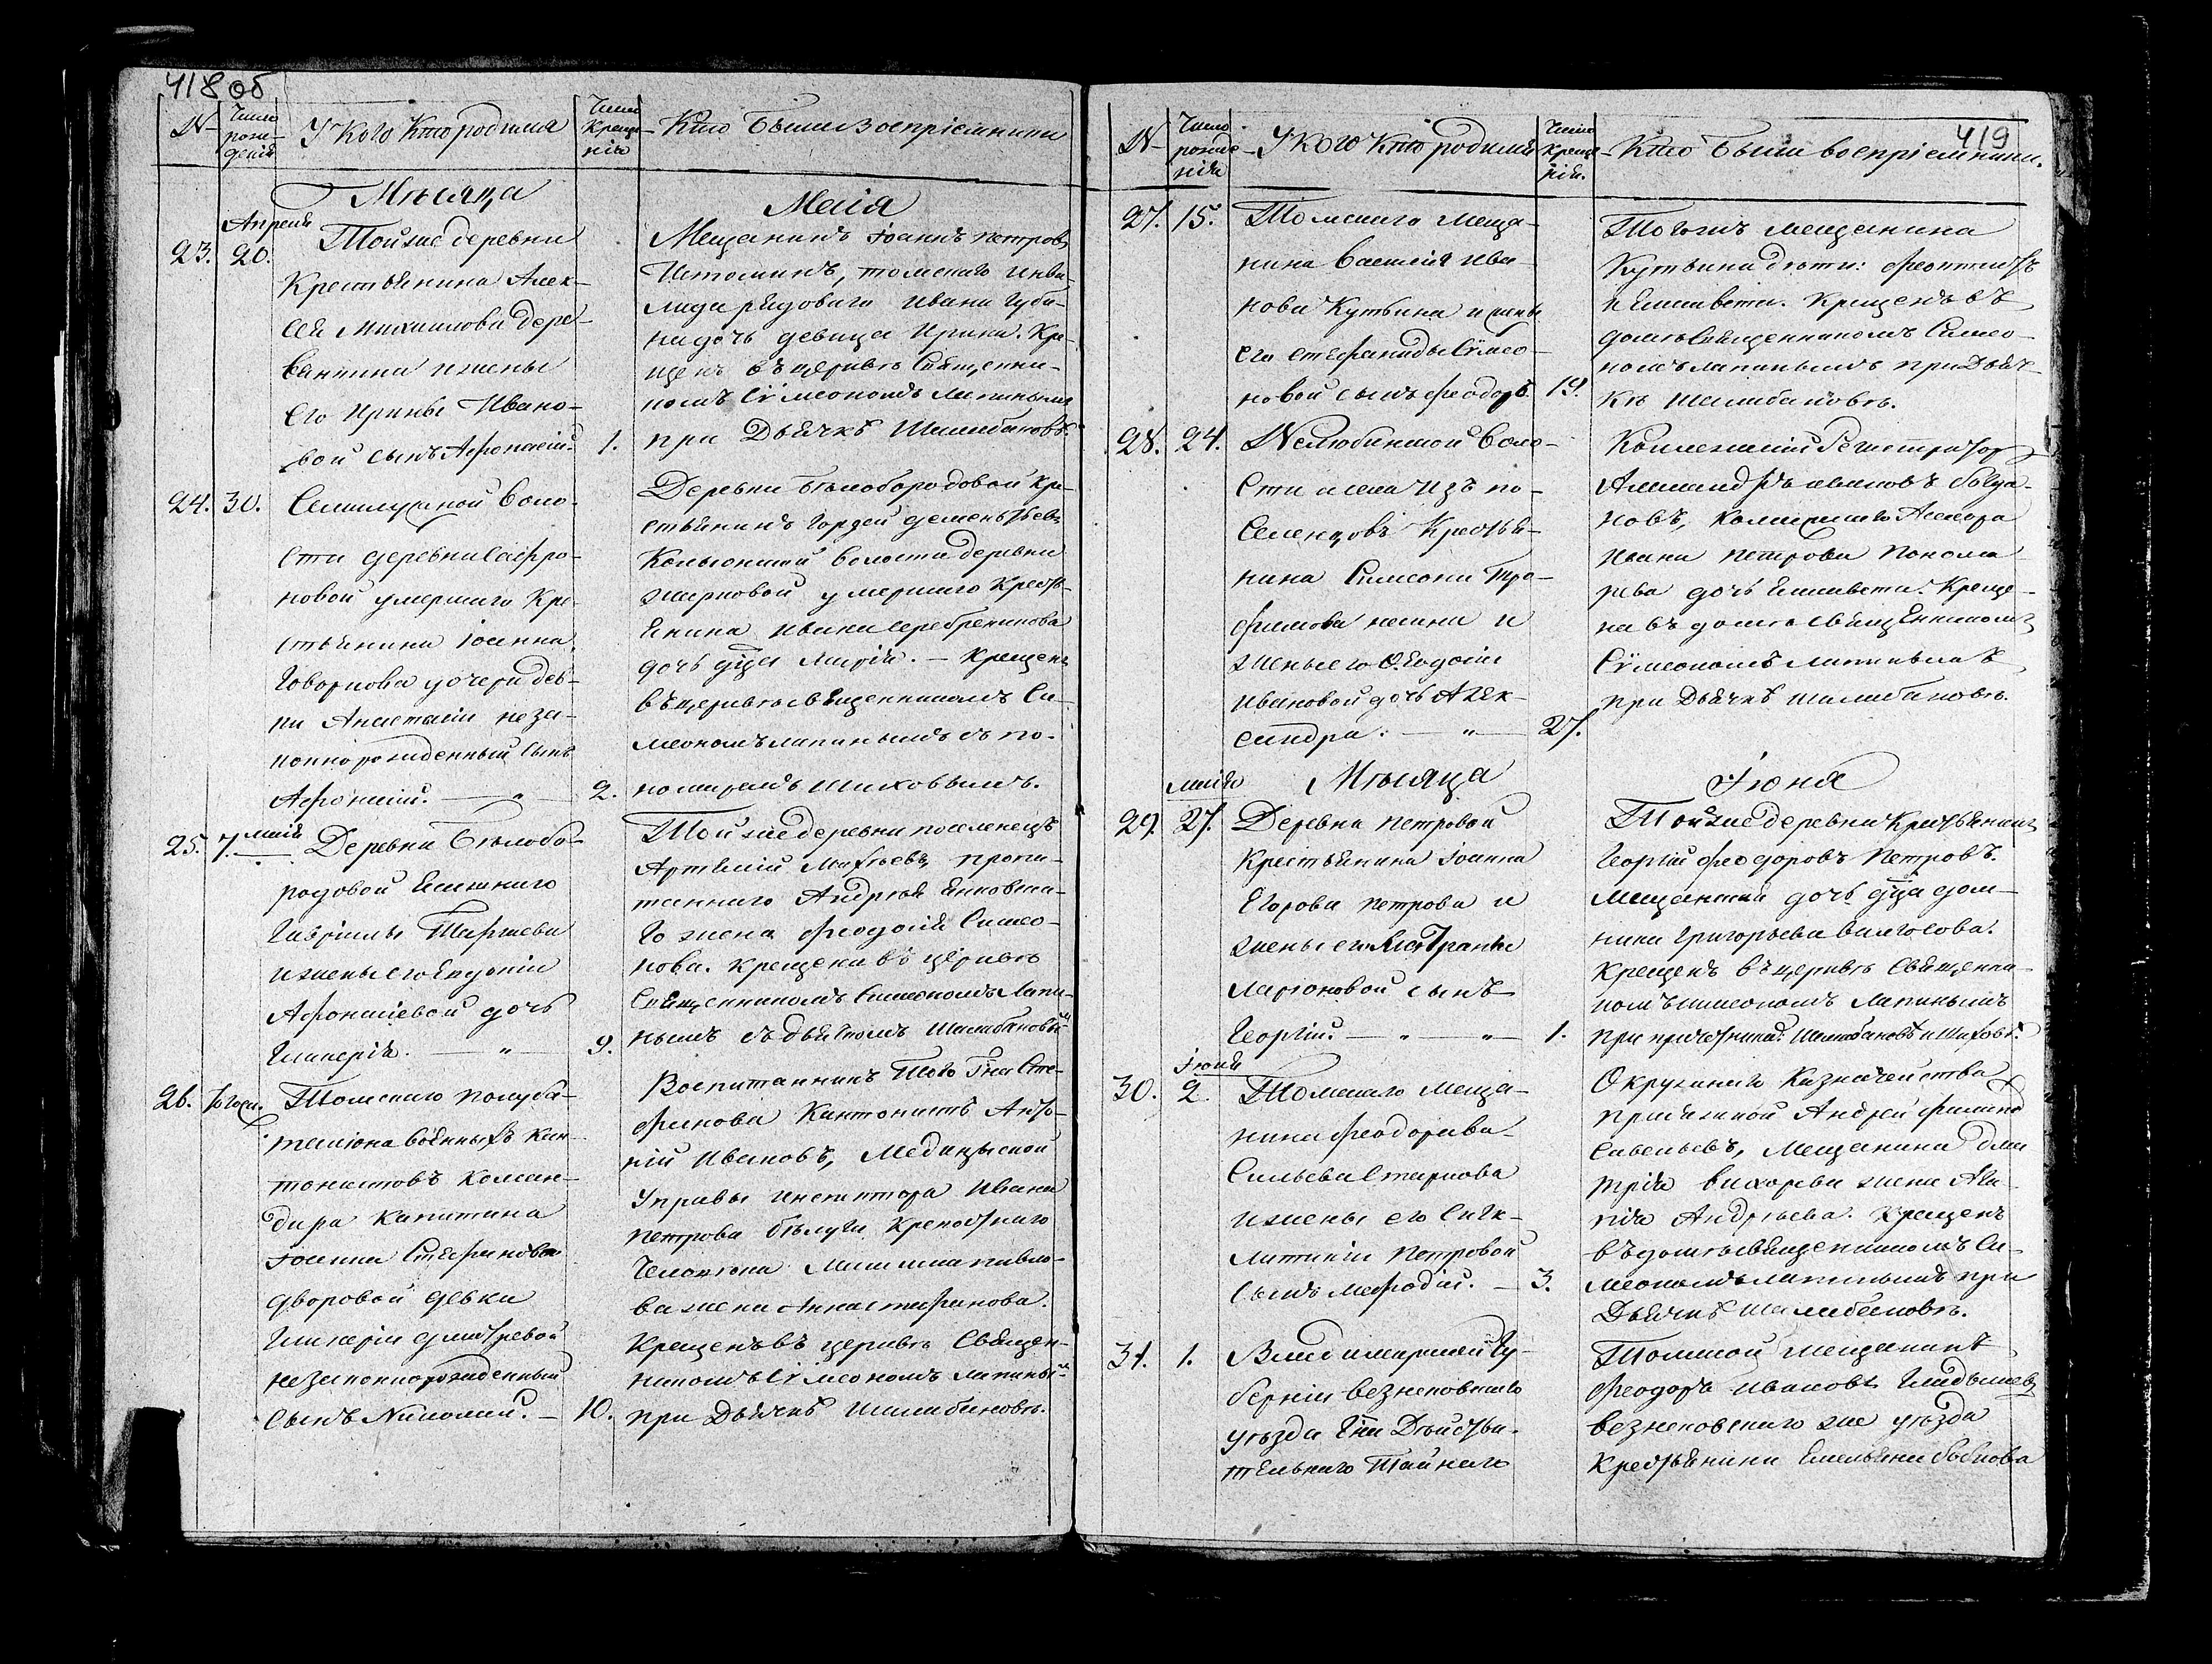 418 об
№
Число рождения
У Кого Кто родился
Число Крещения
Кто были восприемники
Мѣсяца
Маія
Апреля
23. 20.
Тойже деревни
Крестьянина Алек-
сея Михайлова Дере-
ванина и жены
Его Ирины Ивано-
вой сынъ Афонасій. 1.
Мещанинъ Іоаннъ Петровъ
Истоминъ, томскаго инва-
лида рядоваго Ивана Губи-
на дочь девица Ирина. Кре-
щенъ въ церквѣ Священни-
комъ Сѵмеономъ Лапинымъ
при Дьячкѣ Шалабановѣ.
24. 30.
Семилужной Воло-
сти деревни Сафро-
новой умершаго Кре-
стьянина Іоанна
Говоркова дочери дев-
ки Анастасіи неза-
коннорожденный сынъ
Афонасій. — „ — 2.
Деревни Бѣлобородовой Кре-
стьянинъ Гордей Дементьевъ
волости деревни
умершаго Кресть-
янина Ивана Серебреникова
дочь дѣца Марія. — Крещенъ
въ церквѣ священникомъ Си-
меономъ Лапинымъ съ по-
номаремъ Шиховымъ.
25. 7. маія
Деревни Бѣлобо-
родовой
Гаврилы
и жены его Евдокіи
Афонасіевой дочь
Гликерія. — „ — 9.
Той же деревни поселенецъ
Артемій Матѳеевъ, пропи-
таннаго Андрея
го жена Феодосія Симео-
нова. Крещена въ церквѣ
Священникомъ Симеономъ Лапи-
нымъ съ дьячкомъ Шалабановымъ
26.
Томскаго полуба-
таліона военныхъ кан-
тонистовъ Коман-
дира Капитана
Іоанна Стефанова
дворовой девки
Гликеріи Дмитревой
незаконнорожденный
сынъ Николай. — 10.
Воспитанникъ Того Гна Сте-
фанова Кантонистъ Анто-
ній Ивановъ, Медицынской
Управы инспектора Ивана
Петрова Крепостнаго
Человека Павло-
ва жена Анна Стефанова.
Крещенъ въ церквѣ Священ-
никомъ Сѵмеономъ Лапинымъ
при Дьячкѣ Шалабановѣ.
419
№
Число рожденія
У Кого Кто родился
Число Крещенія.
Кто были восприемники.
27. 15.
Томскаго меща-
нина Василія Ива-
нова Кутьина и жены
его Стефаниды Сѵмео-
новой сынъ Феодоръ. 19.
Тогожъ мещанина
Кутьина дѣти: Феоктистъ
и Елисавета. Крещенъ въ
домѣ Священникомъ Симео-
номъ Лапинымъ при Дьяч-
кѣ Шалабановѣ.
28. 24.
Нелюбинской Воло-
сти села изъ по-
селенцовъ Крестья-
нина Симеона Тро-
фимова и
жены его Ѳ. Евдокіи
Ивановой дочь Алек-
сандра. — „ — 27.
Коллежскій Регистраторъ
Александръ Ивановъ
Коллежскаго Асесора
Ивана Петрова Понома-
рева дочь Елисавета. Креще-
на въ домѣ священникомъ
Сѵмеономъ Лапинымъ
при Дьячкѣ Шалабановѣ.
маія
Мѣсяца
Іюня
29. 27.
Деревни Петровой
Крестьянина Іоанна
Егорова Петрова и
жены его
Ларіоновой сынъ
Георгій. — „ — „ — 1.
Той же деревни Крестьянинъ
Георгій Феодоровъ Петровъ.
Мещанская дочь дѣца Дом-
ника Григорьева
Крещенъ въ церквѣ Священни-
комъ Симеономъ Лапинымъ
при Шалабановѣ и Шиховѣ.
іюня
30. 2.
Томскаго меща-
нина Феодора Ва-
сильева Старкова
и жены его Сигк-
литикіи Петровой
сынъ Мефодій. — 3.
Окружнаго Казначейства
Присяжной Андрей
Савельевъ, Мещанина Дми-
трія жена Ага-
пія Андреева. Крещенъ
въ домѣ священникомъ Си-
меономъ Лапинымъ при
Дьячкѣ Шалабановѣ.
31. 1.
Владимирской Гу-
берніи Вязниковскаго
уѣзда Гна Дѣйстви-
тельнаго Тайнаго
Томской мещанинъ
Феодоръ Ивановъ
Вязниковскаго же уѣзда
Крестьянина Емельяна